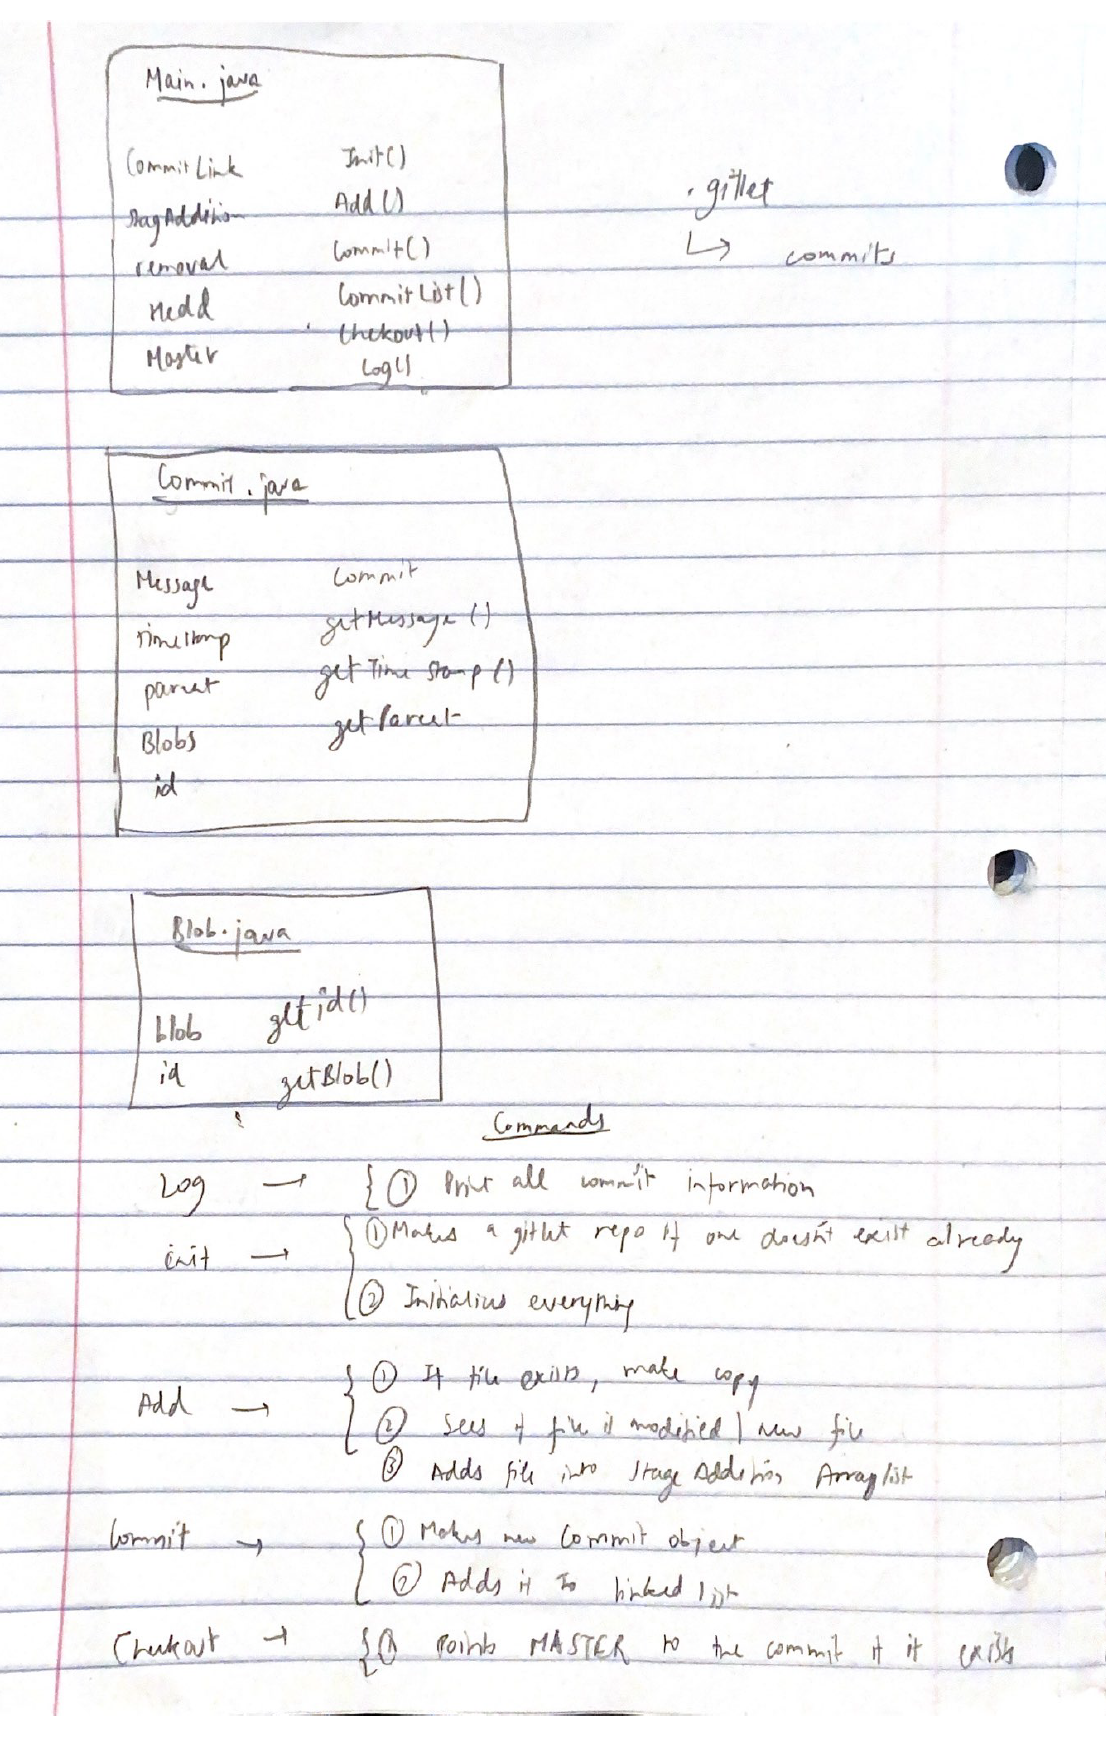 Main.java
CommitLink Init()
StagAddition Add()
removal Commit()
Head CommitList()
Master Checkout()
Log()
.gitlet
↳ commits
Commit.java
Message Commit
Timestamp getMessage()
parent getTimeStamp()
Blobs getParent
id
Blob.java
blob getid()
id getBlob()
Commands
Log → { ① Print all commit information
init → { ① Makes a gitlet repo if one doesn't exist already
② Initializes everything
Add → { ① If file exists, make copy
② Sees if file is modified / new file
③ Adds file into Stage Addition Arraylist
Commit → { ① Makes new Commit object
② Adds it to linked list
Checkout → { ① Points MASTER to the commit if it exists